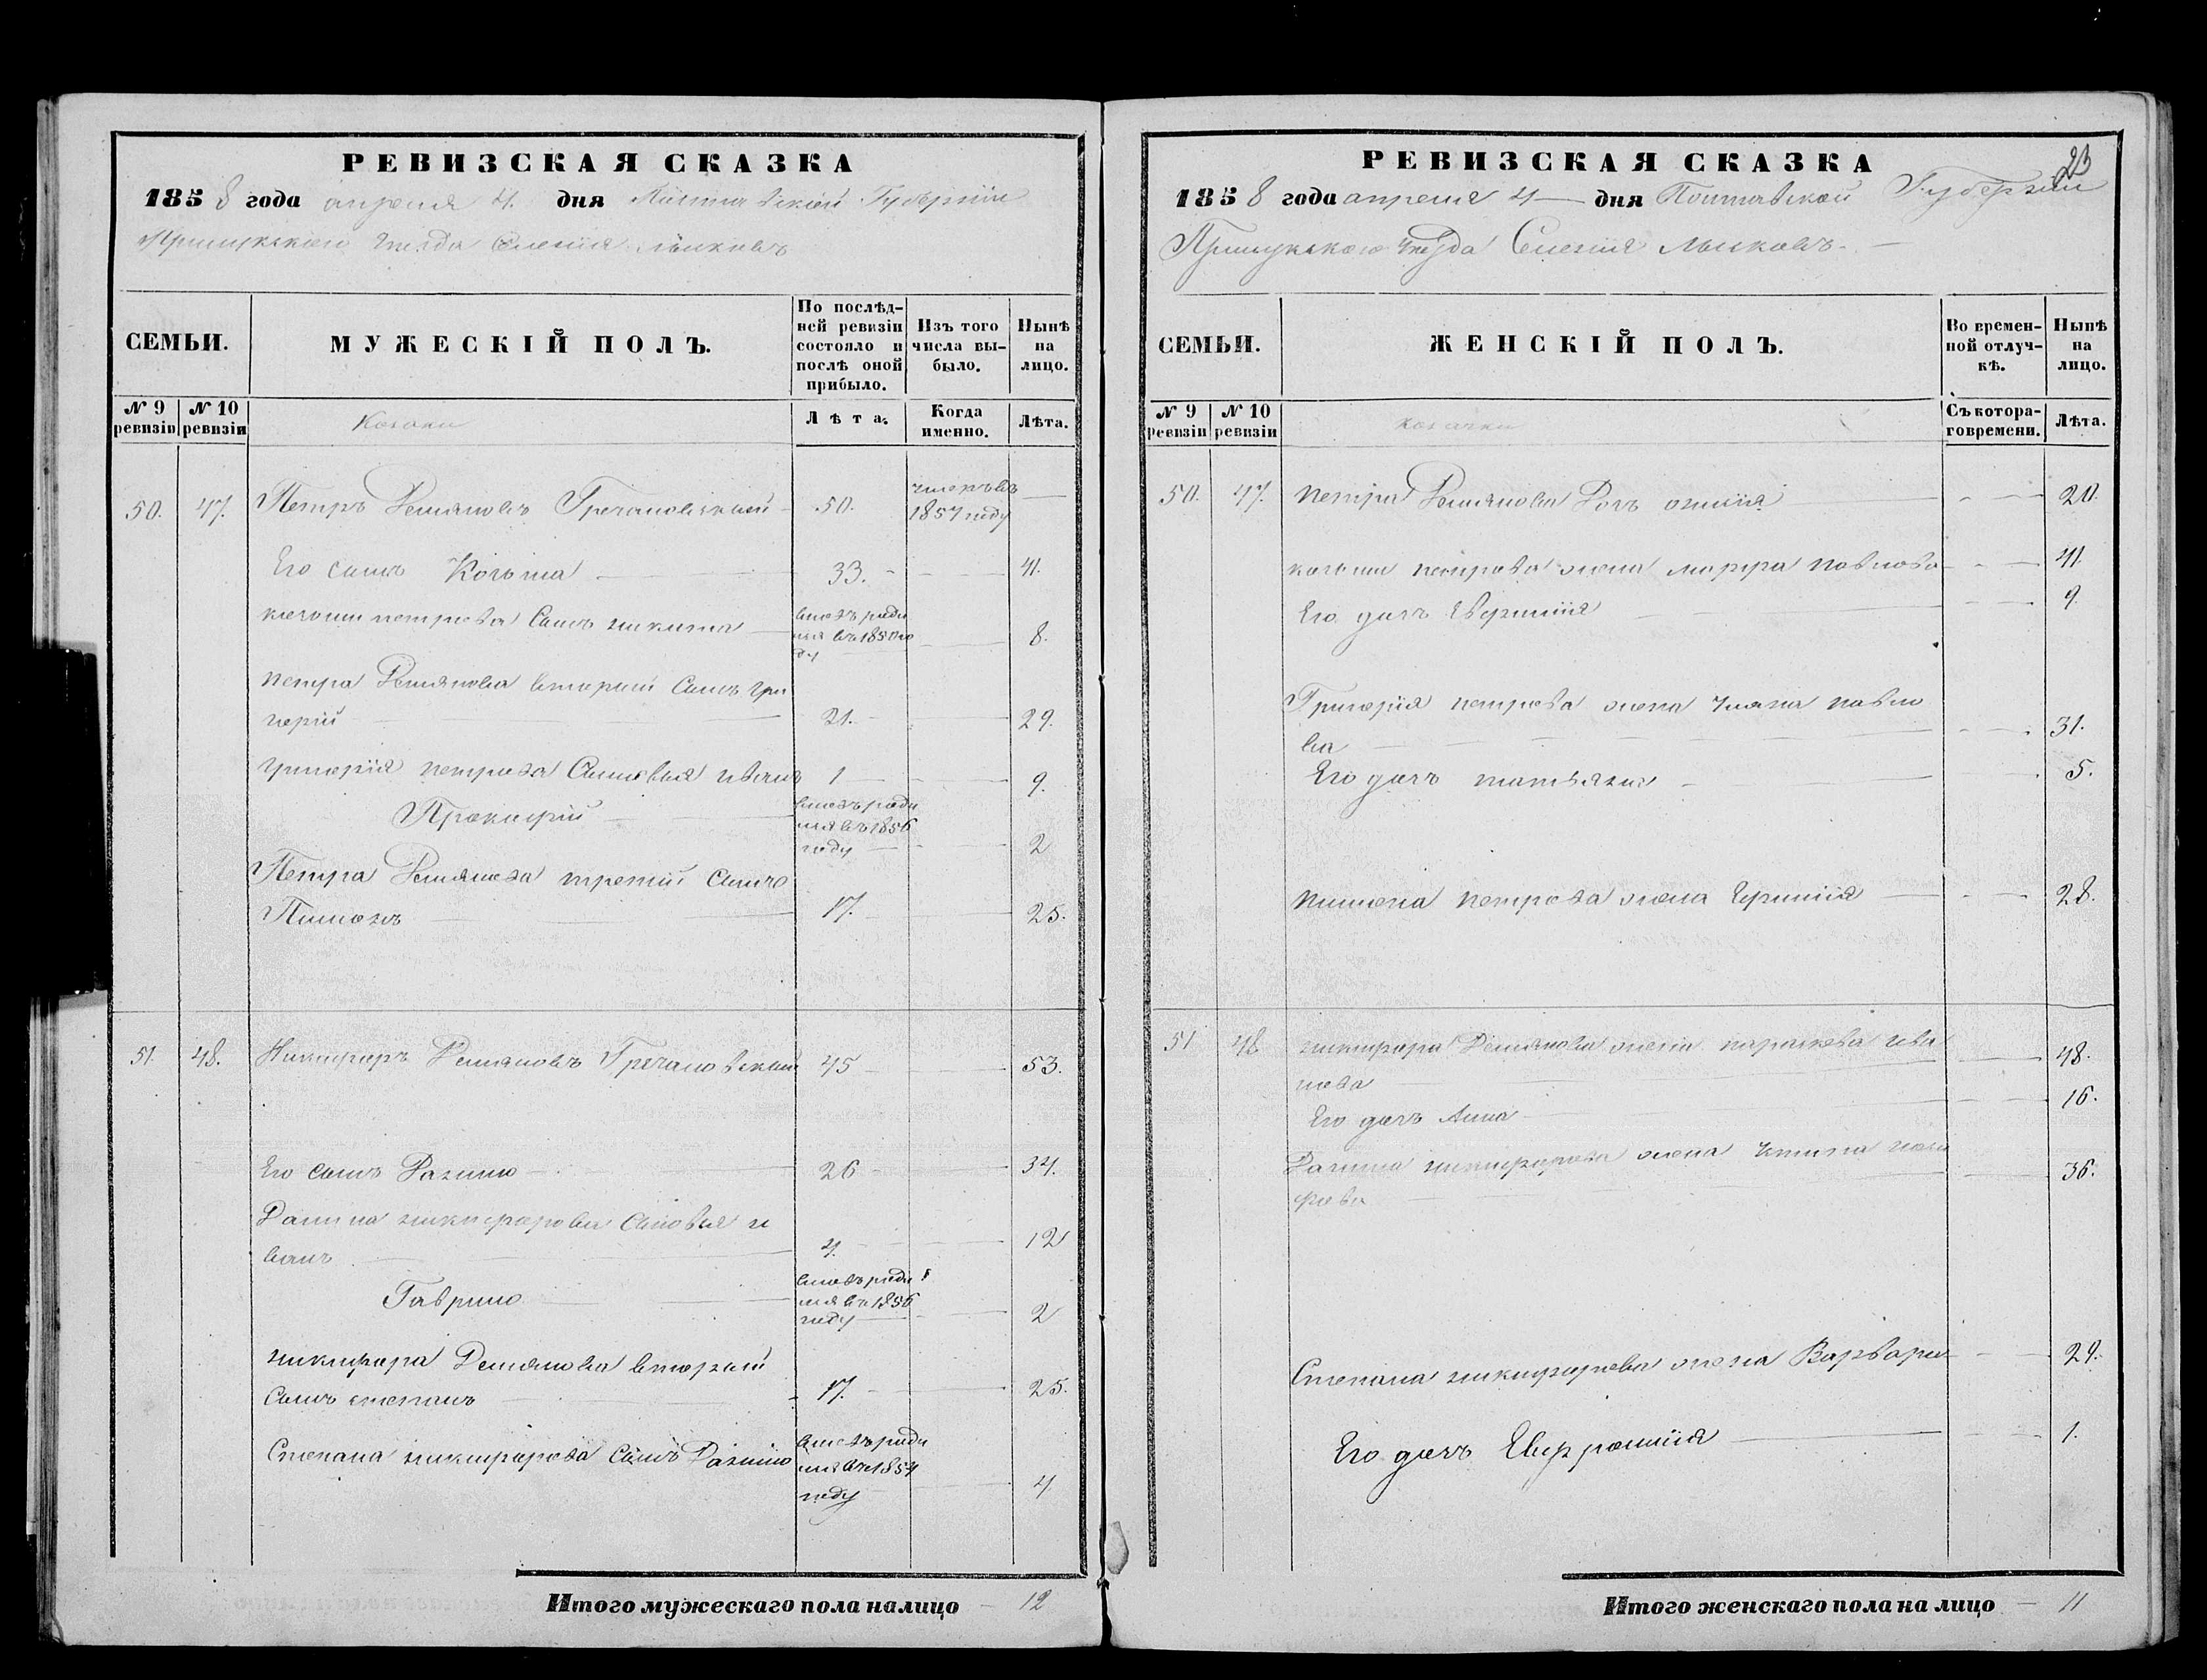 РЕВИЗСКАЯ СКАЗКА
1858 года апреля 4. дня Полтавской Губерніи
Прилукскаго уезда Селенія
СЕМЬИ.
МУЖЕСКІЙ ПОЛЪ.
По послѣд-
ней ревизіи
состояло и
послѣ оной
прибыло.
Изъ того
числа вы-
было.
Нынѣ
на
лицо.
№ 9
ревизіи
№ 10
ревизіи
Козаки
Лѣта.
Когда
именно.
Лѣта.
50. 47. Петръ Демяновъ Гречановскый 50.
умеръ въ
1857 году
Его сынъ Козьма 33. 41.
козьми петрова Сынъ никита
вновь роди
ля въ 1850 го
ду
8.
петра Демянова вторый Сынъ гри
горій 21. 29.
григорія петрова Сыновья иванъ 1 9.
Прокофій
вновь роди
ля въ 1856
году
2
Петра Демянова третій Сынъ
Пимонъ 17. 25.
51. 48. Никифоръ Демяновъ Гречановскый 45 53.
Его сынъ Данило 26 34.
Данила никифорова Сыновья и
ванъ 4. 12
Гаврило
вновь роди
ля въ 1856
году
2
никифора Демянова вторый
Сынъ степанъ 17. 25.
Степана никифорова Сынъ Данило
вновь роди
ля въ 1854
году
4
Итого мужескаго пола налицо 12
23
РЕВИЗСКАЯ СКАЗКА
1858 года апреля 4 дня Полтавской Губерніи
Прилукскаго уезда Селенія
СЕМЬИ.
ЖЕНСКІЙ ПОЛЪ.
Во времен-
ной отлуч-
кѣ.
Нынѣ
на
лицо.
№ 9
ревизіи
№ 10
ревизіи
козачки
Съ котора-
го времени.
Лѣта.
50. 47. петра Демянова Доч 20.
козьми петрова жена марфа павлова 41.
Его дочъ 9.
Григорія петрова жена уляна павло
ва 31.
Его дочъ татьяна 5.
пимона петрова жена 28.
51 48 никифора Демянова жена параскева ива
нова 48.
Его дочъ Анна 16.
Данила никифорова жена 36.
Степана никифорова жена Варвара 29.
Его дочъ Евфросинія 1.
Итого женскаго пола на лицо 11